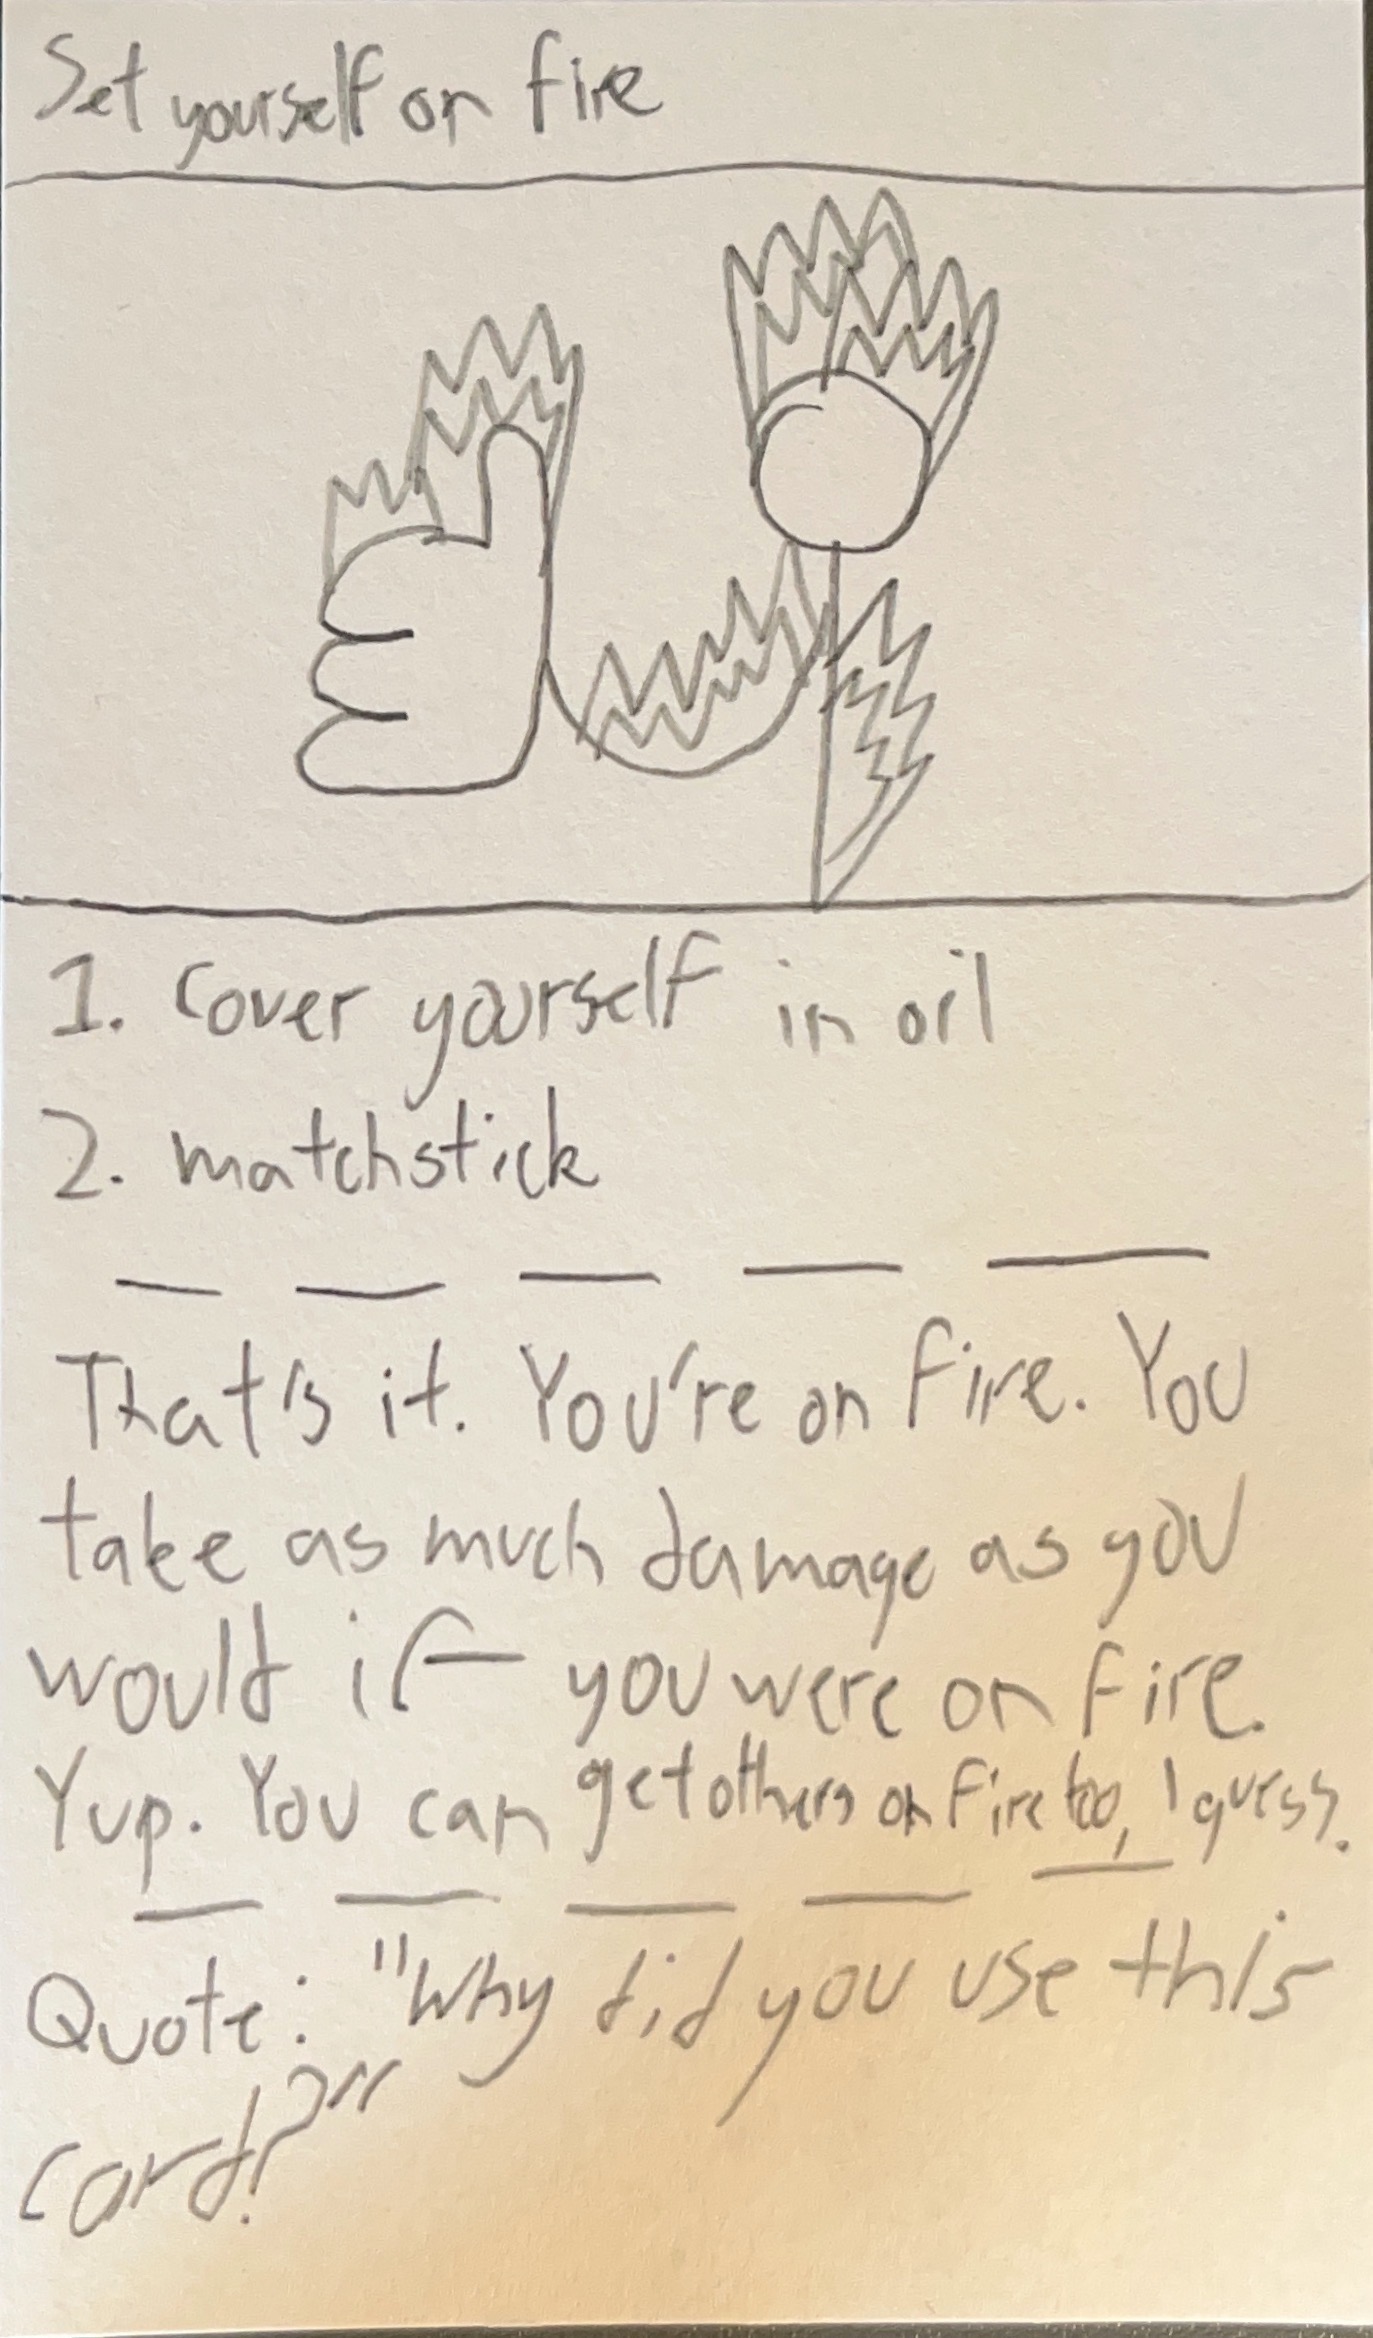 Set yourself on fire
1. Cover yourself in oil
2. matchstick
That's it. You're on fire. You
take as much damage as you
would if you were on fire.
Yup. You can get others on fire too, I guess.
Quote: "Why did you use this
card?"